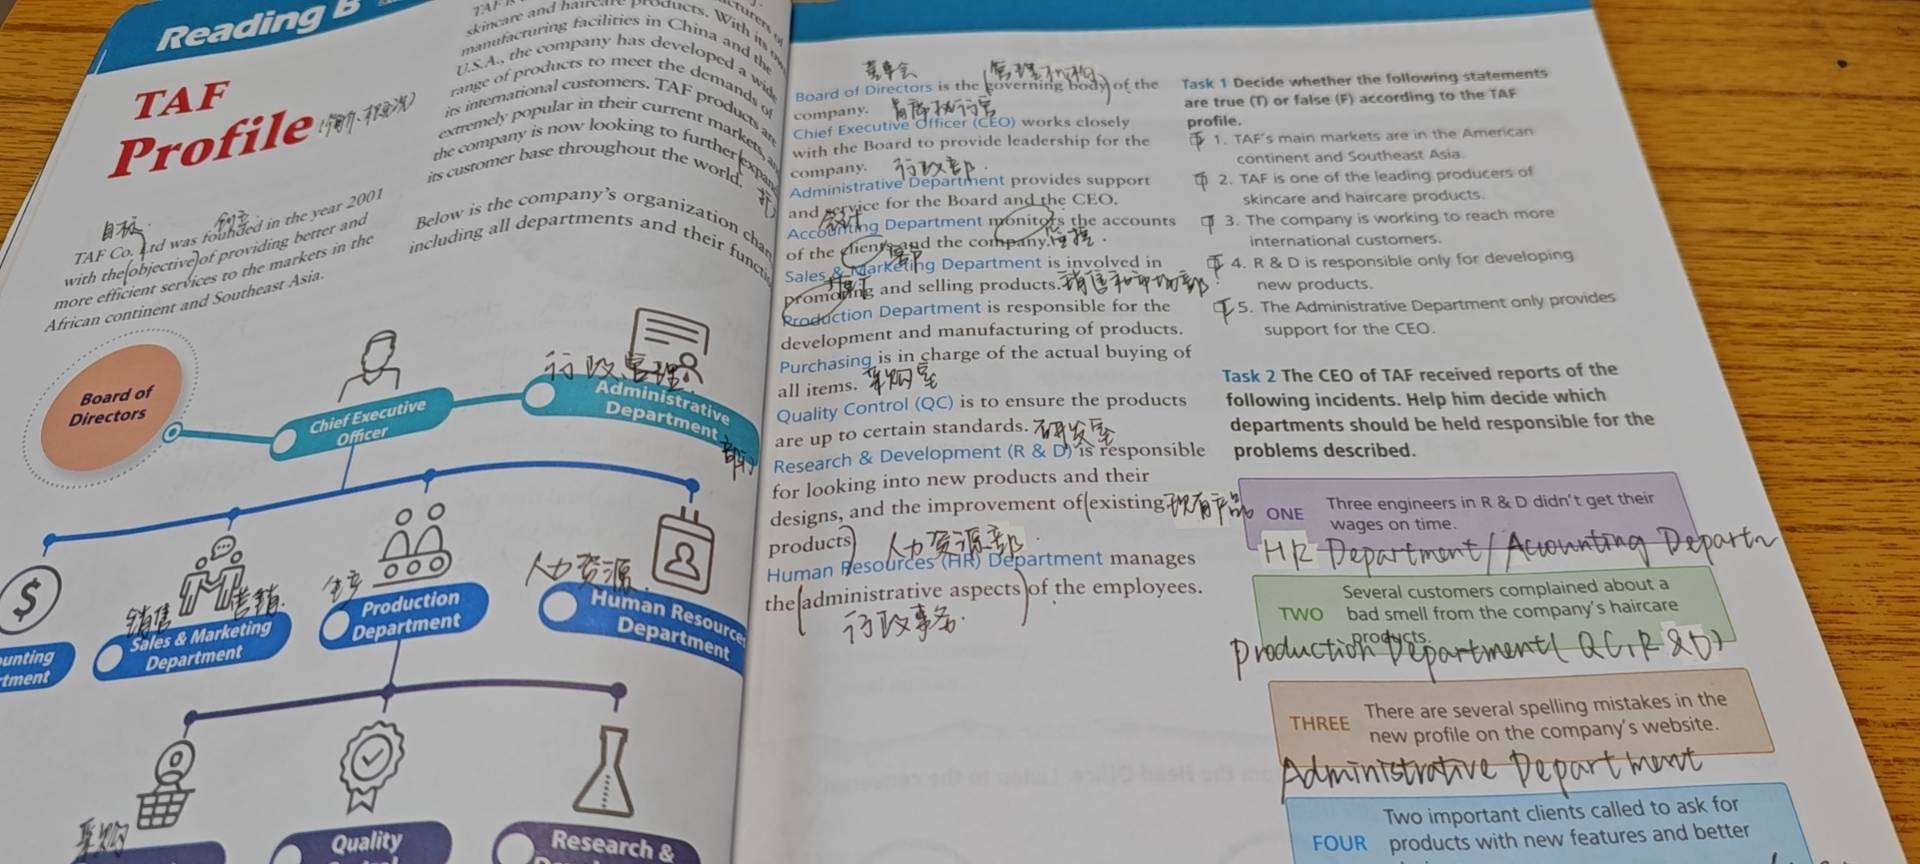 Reading B
TAF
Profile
TAF Co. Ltd was founded in the year 2001
with the objective of providing better and
more efficient services to the markets in the
African continent and Southeast Asia.
目标
创立
skincare and haircare products. With its
manufacturing facilities in China and the
U.S.A., the company has developed a wide
range of products to meet the demands of
its international customers. TAF products are
extremely popular in their current markets,
the company is now looking to further
its customer base throughout the world.
Below is the company's organization
including all departments and their
Board of
Directors
Chief Executive
Officer
行政管理
Administrative
Department
部门
销售
营销
Sales & Marketing
Department
生产
Production
Department
人力资源
Human Resource
Department
采购
Quality
Research &
董事会
管理机构
Board of Directors is the (governing body) of the
company. 首席执行官
Chief Executive Officer (CEO) works closely
with the Board to provide leadership for the
company. 行政部.
Administrative Department provides support
and service for the Board and the CEO.
会计
Accounting Department monitors the accounts
of the client and the company.
客户
Sales & Marketing Department is involved in
promoting and selling products. 销售和市场部
Production Department is responsible for the
development and manufacturing of products.
Purchasing is in charge of the actual buying of
all items. 采购室
Quality Control (QC) is to ensure the products
are up to certain standards. 研发室
Research & Development (R & D) is responsible
for looking into new products and their
designs, and the improvement of (existing 现有产品
products) 人力资源部.
Human Resources (HR) Department manages
the (administrative aspects) of the employees.
行政事务.
Task 1 Decide whether the following statements
are true (T) or false (F) according to the TAF
profile.
1. TAF's main markets are in the American
continent and Southeast Asia.
2. TAF is one of the leading producers of
skincare and haircare products.
3. The company is working to reach more
international customers.
4. R & D is responsible only for developing
new products.
5. The Administrative Department only provides
support for the CEO.
Task 2 The CEO of TAF received reports of the
following incidents. Help him decide which
departments should be held responsible for the
problems described.
ONE Three engineers in R & D didn't get their
wages on time.
HR Department/Accounting Departm
TWO Several customers complained about a
bad smell from the company's haircare
products.
production Department( QC, R & D)
THREE There are several spelling mistakes in the
new profile on the company's website.
Administrative Department
FOUR Two important clients called to ask for
products with new features and better